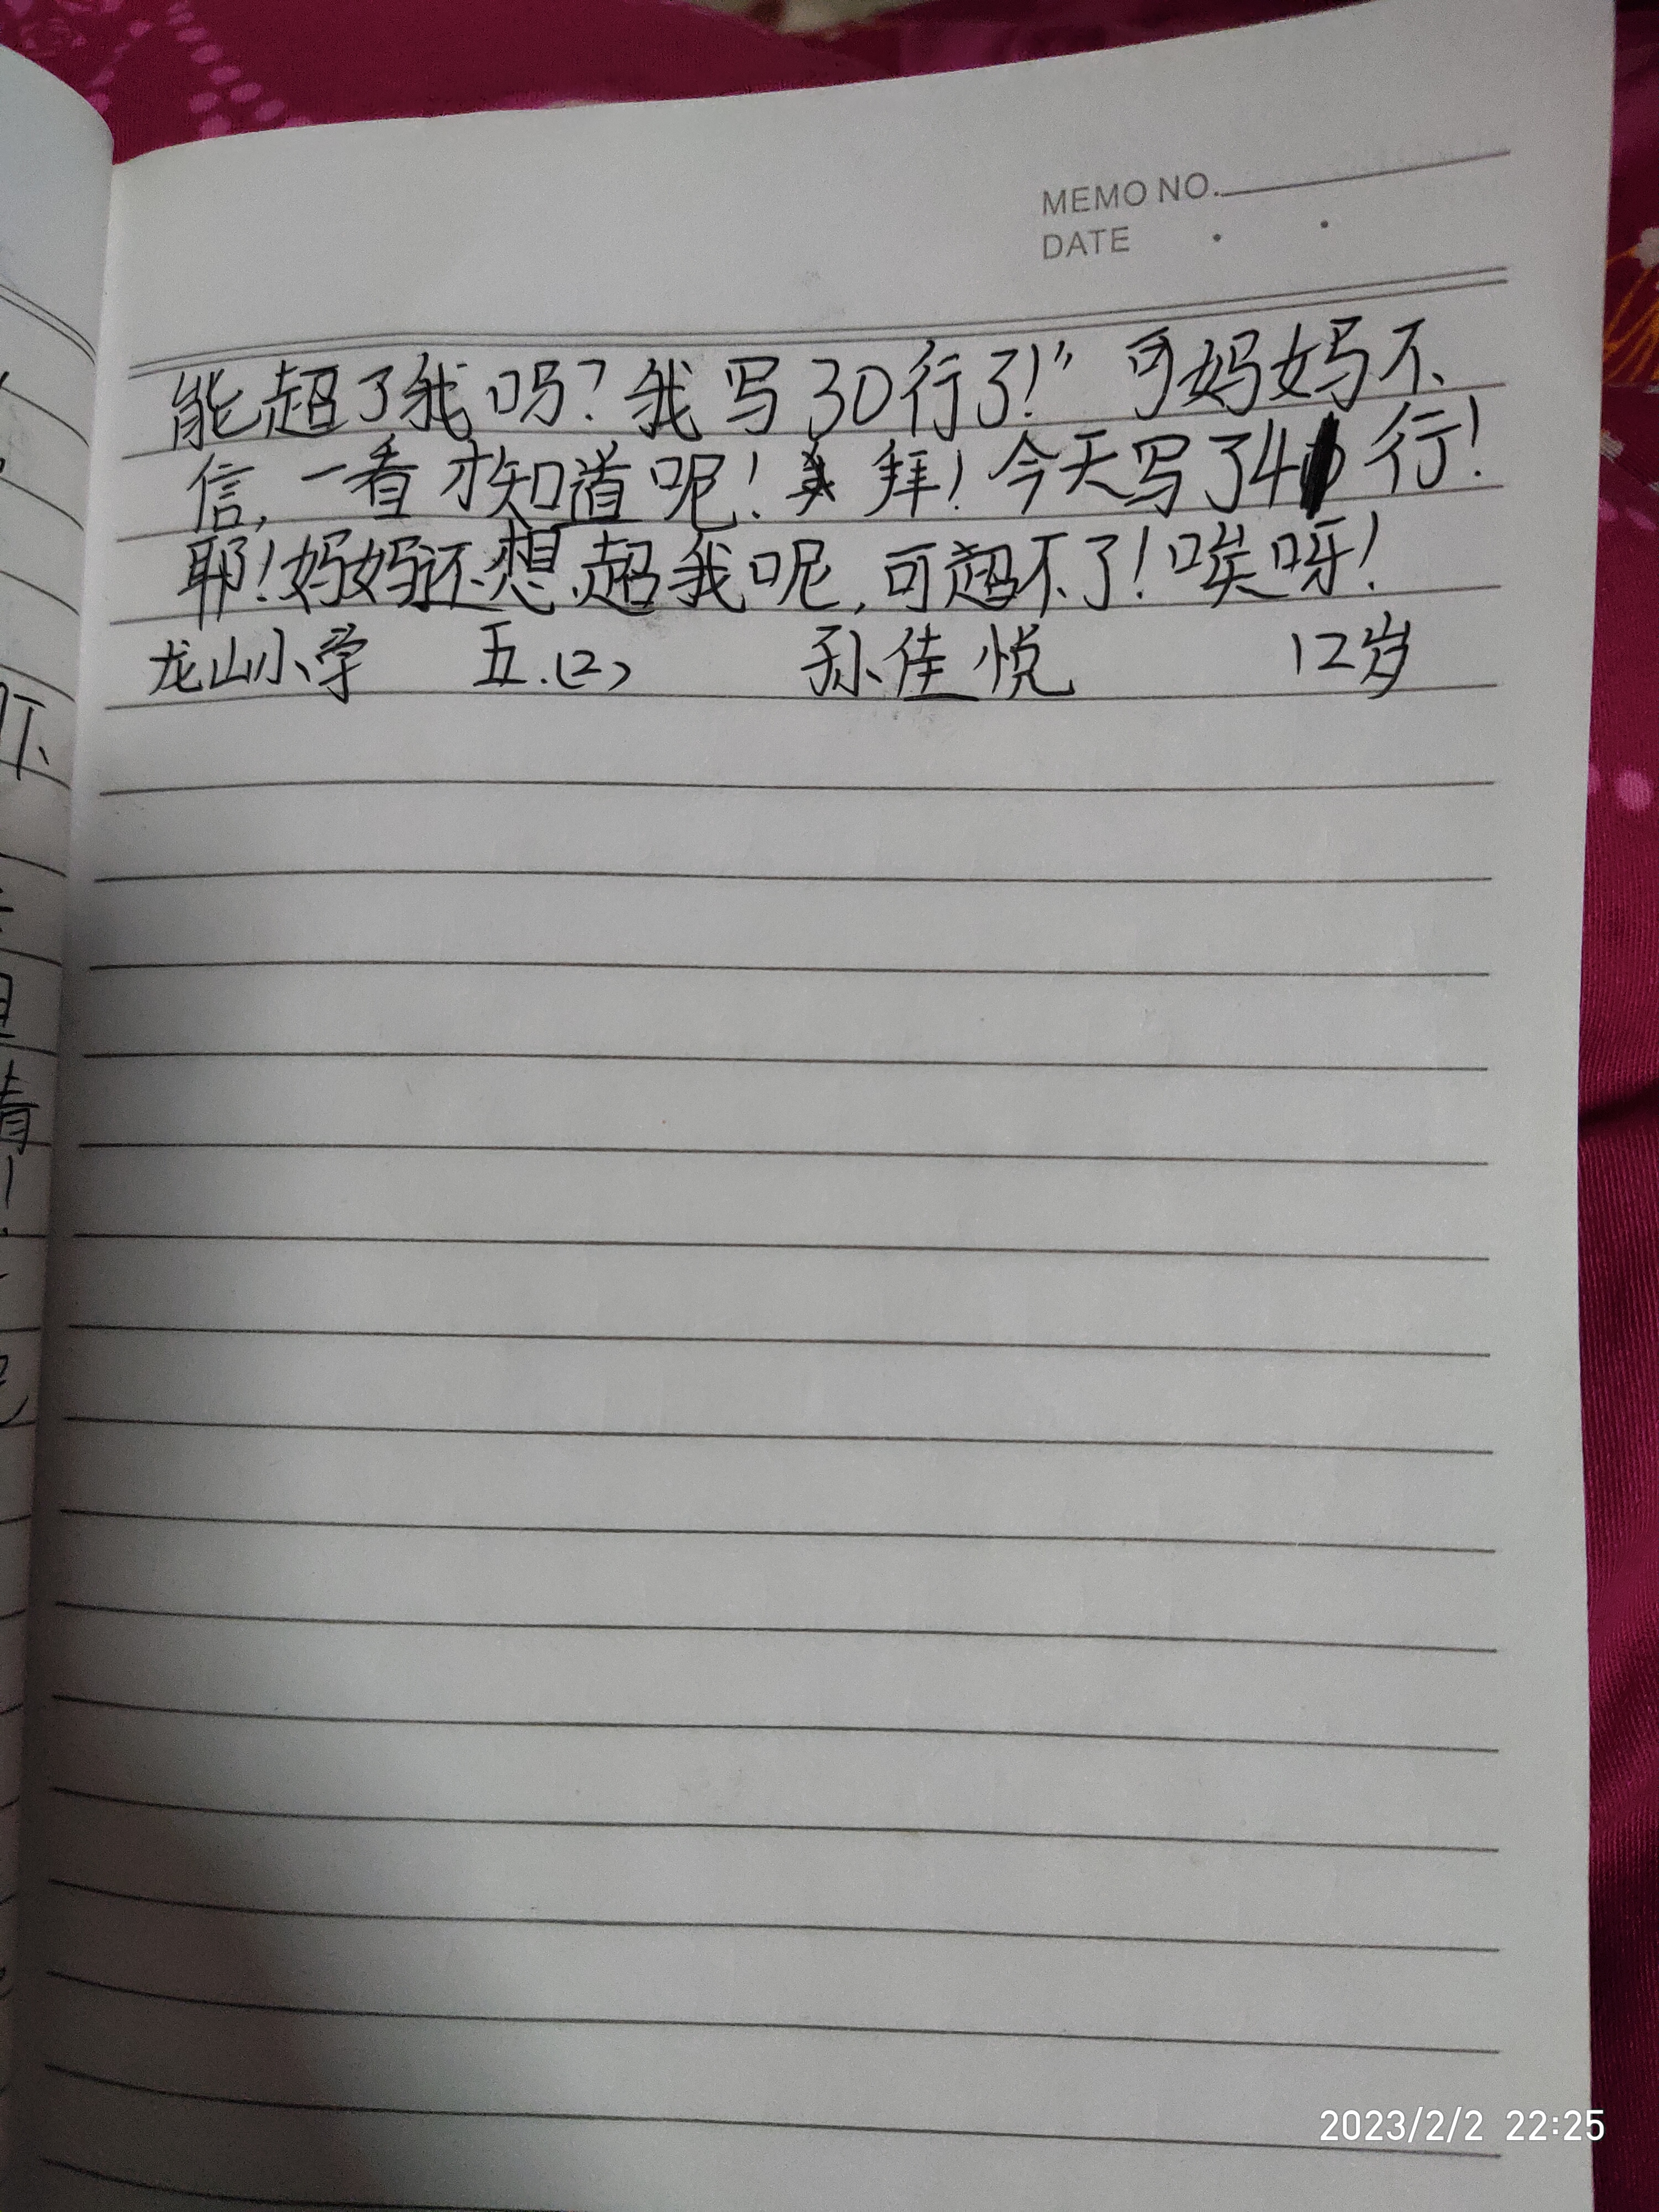 MEMO NO.
DATE . .
能超了我吗？我写30行了！” 可妈妈不
信，一看才知道呢！拜！今天写了41行！
耶！妈妈还想超我呢，可超不了！唉呀！
龙山小学 五.(2) 孙佳悦 12岁
2023/2/2 22:25